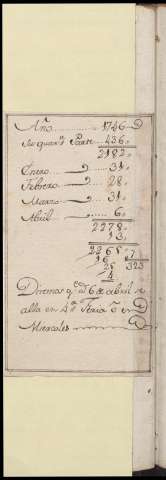 Año 1746
Su quarta Parte 436
2182
Enero 31
Febrero 28
Marzo 31
Abril 6
2278
13
2265 7
16 323
25
4
Diremos q̃ el 6 de abril se
alla en 4ª Feria ō en D
Miercoles